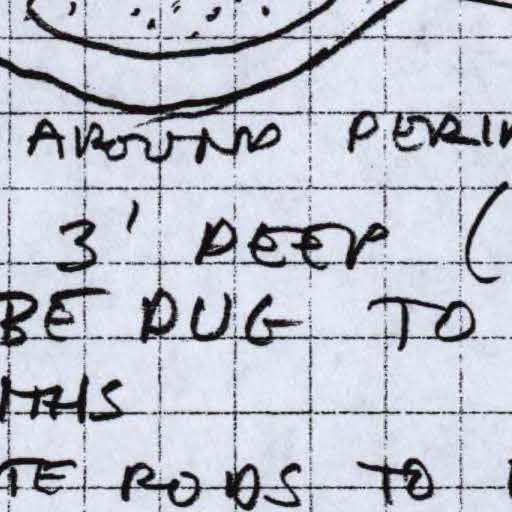 AROUND PERIM
3' DEEP (
BE DUG TO
MTHS
TE RODS TO